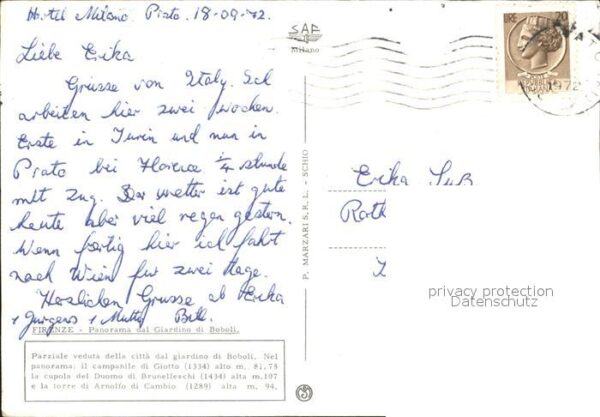 Hotel Milano. Prato. 18-09-72.
Liebe Erika
Grüsse von Italy. Ich
arbeiten hier zwei wochen.
Erste in Turin und nun in
Prato bei Florence ¼ stunde
mit Zug. Der wetter ist gute
heute aber viel regen gestern.
Wenn fertig hier ich fahrt
nach Wien fur zwei tage.
Herzlichen Grusse ab Erika
+ Jurgens + Mutty Bill.
FIRENZE - Panorama dal Giardino di Boboli.
Parziale veduta della città dal giardino di Boboli. Nel
panorama: il campanile di Giotto (1334) alto m. 81,75
la cupola del Duomo di Brunelleschi (1434) alta m.107
e la torre di Arnolfo di Cambio (1289) alta m. 94.
SAF
Milano
P. MARZARI S.R.L. - SCHIO
LIRE 20
1972
Erika
Roth
privacy protection
Datenschutz